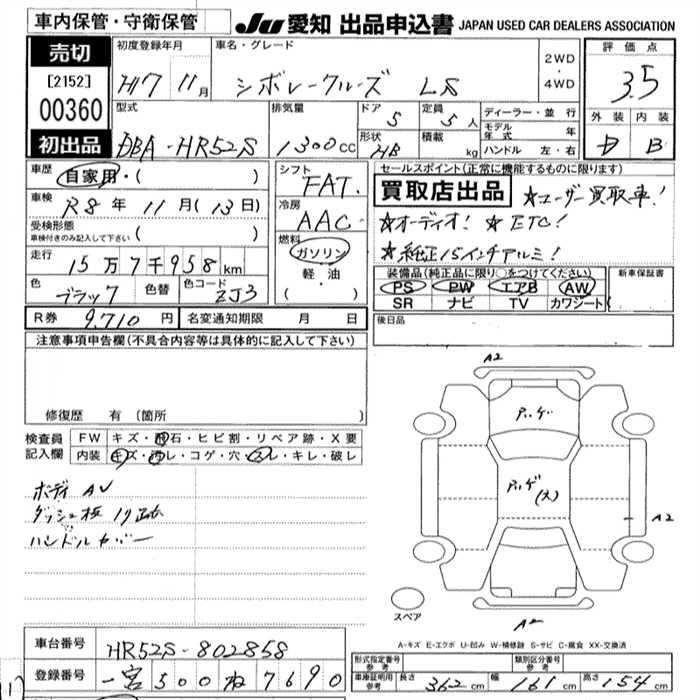 車内保管・守衛保管
JU 愛知 出品申込書 JAPAN USED CAR DEALERS ASSOCIATION
売切
[2152]
00360
初出品
初度登録年月
H7 11月
車名・グレード
シボレークルーズ LS
2WD
・
4WD
評価点
3.5
外装 内装
D B
型式
DBA-HR52S
排気量
1300cc
ドア
5
定員
5人
形状
HB
積載
kg
ディーラー・並行
モデル年式 年
ハンドル 左・右
車歴
自家用・( )
車検
R8年11月(13日)
受検形態
車検付きのみ記入して下さい ( )
走行
15万7千958km
色
ブラック
色替
色コード
ZJ3
シフト
FAT
冷房
AAC
燃料
ガソリン
・
軽・油
( )
セールスポイント(正常に機能するものに限る)
買取店出品
☆ユーザー買取車!
☆オーディオ! ☆ETC!
☆純正15インチアルミ!
装備品(純正品に限り○をつけてください)
PS PW エアB AW
SR ナビ TV カワシート
新車保証書
後日品
R券 9,710円
名変通知期限 月 日
注意事項申告欄(不具合内容等は具体的に記入して下さい)
修復歴 有 (箇所
検査員記入欄
FW キズ・飛石・ヒビ割・リペア跡・X要
内装 キズ・汚レ・コゲ・穴・スレ・キレ・破レ
ボディ AU
ダッシュ板 リ跡
ハンドルカバー
A2
ハゲ
ハゲ
(大)
A2
スペア
A2
A-キズ E-エクボ U-凹み W-補修跡 S-サビ C-腐食 XX-交換済
車台番号
HR52S-802858
登録番号
一宮 500 ね 7690
形式指定番号 参考
類別区分番号 参考
車庫証明用 参考
長さ 362cm
幅 161cm
高さ 154cm